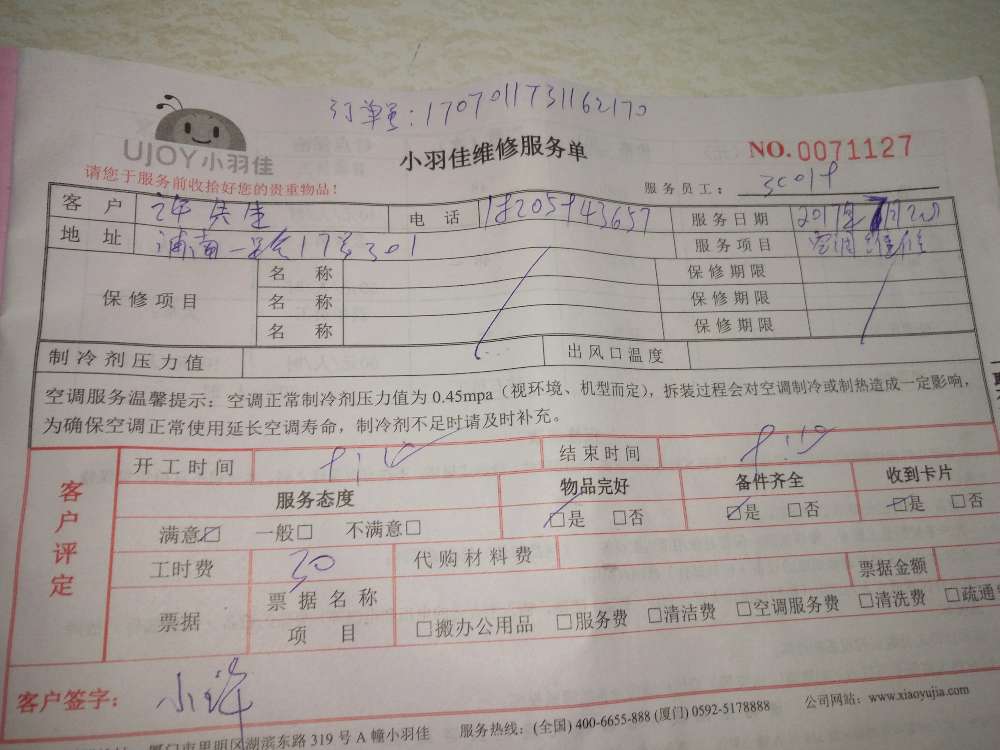 订单号：1707011731162170
UJOY小羽佳
小羽佳维修服务单
NO.0071127
请您于服务前收拾好您的贵重物品！
服务员工：
客 户 许先生 电 话 服务日期 2017年7月2日
地 址 17号301 服务项目 空调维修
保修项目 名 称 保修期限
名 称 保修期限
名 称 保修期限
制冷剂压力值 出风口温度
空调服务温馨提示：空调正常制冷剂压力值为0.45mpa（视环境、机型而定），拆装过程会对空调制冷或制热造成一定影响，
为确保空调正常使用延长空调寿命，制冷剂不足时请及时补充。
客户评定
开工时间 结束时间
服务态度 物品完好 备件齐全 收到卡片
满意☑ 一般□ 不满意□ ☑是 □否 ☑是 □否 ☑是 □否
工时费 30 代购材料费 票据金额
票据 票据名称
项 目 □搬办公用品 □服务费 □清洁费 □空调服务费 □清洗费 □疏通
客户签字： 小许
厦门市思明区湖滨东路319号A幢小羽佳 服务热线：(全国) 400-6655-888 (厦门) 0592-5178888 公司网站：www.xiaoyujia.com